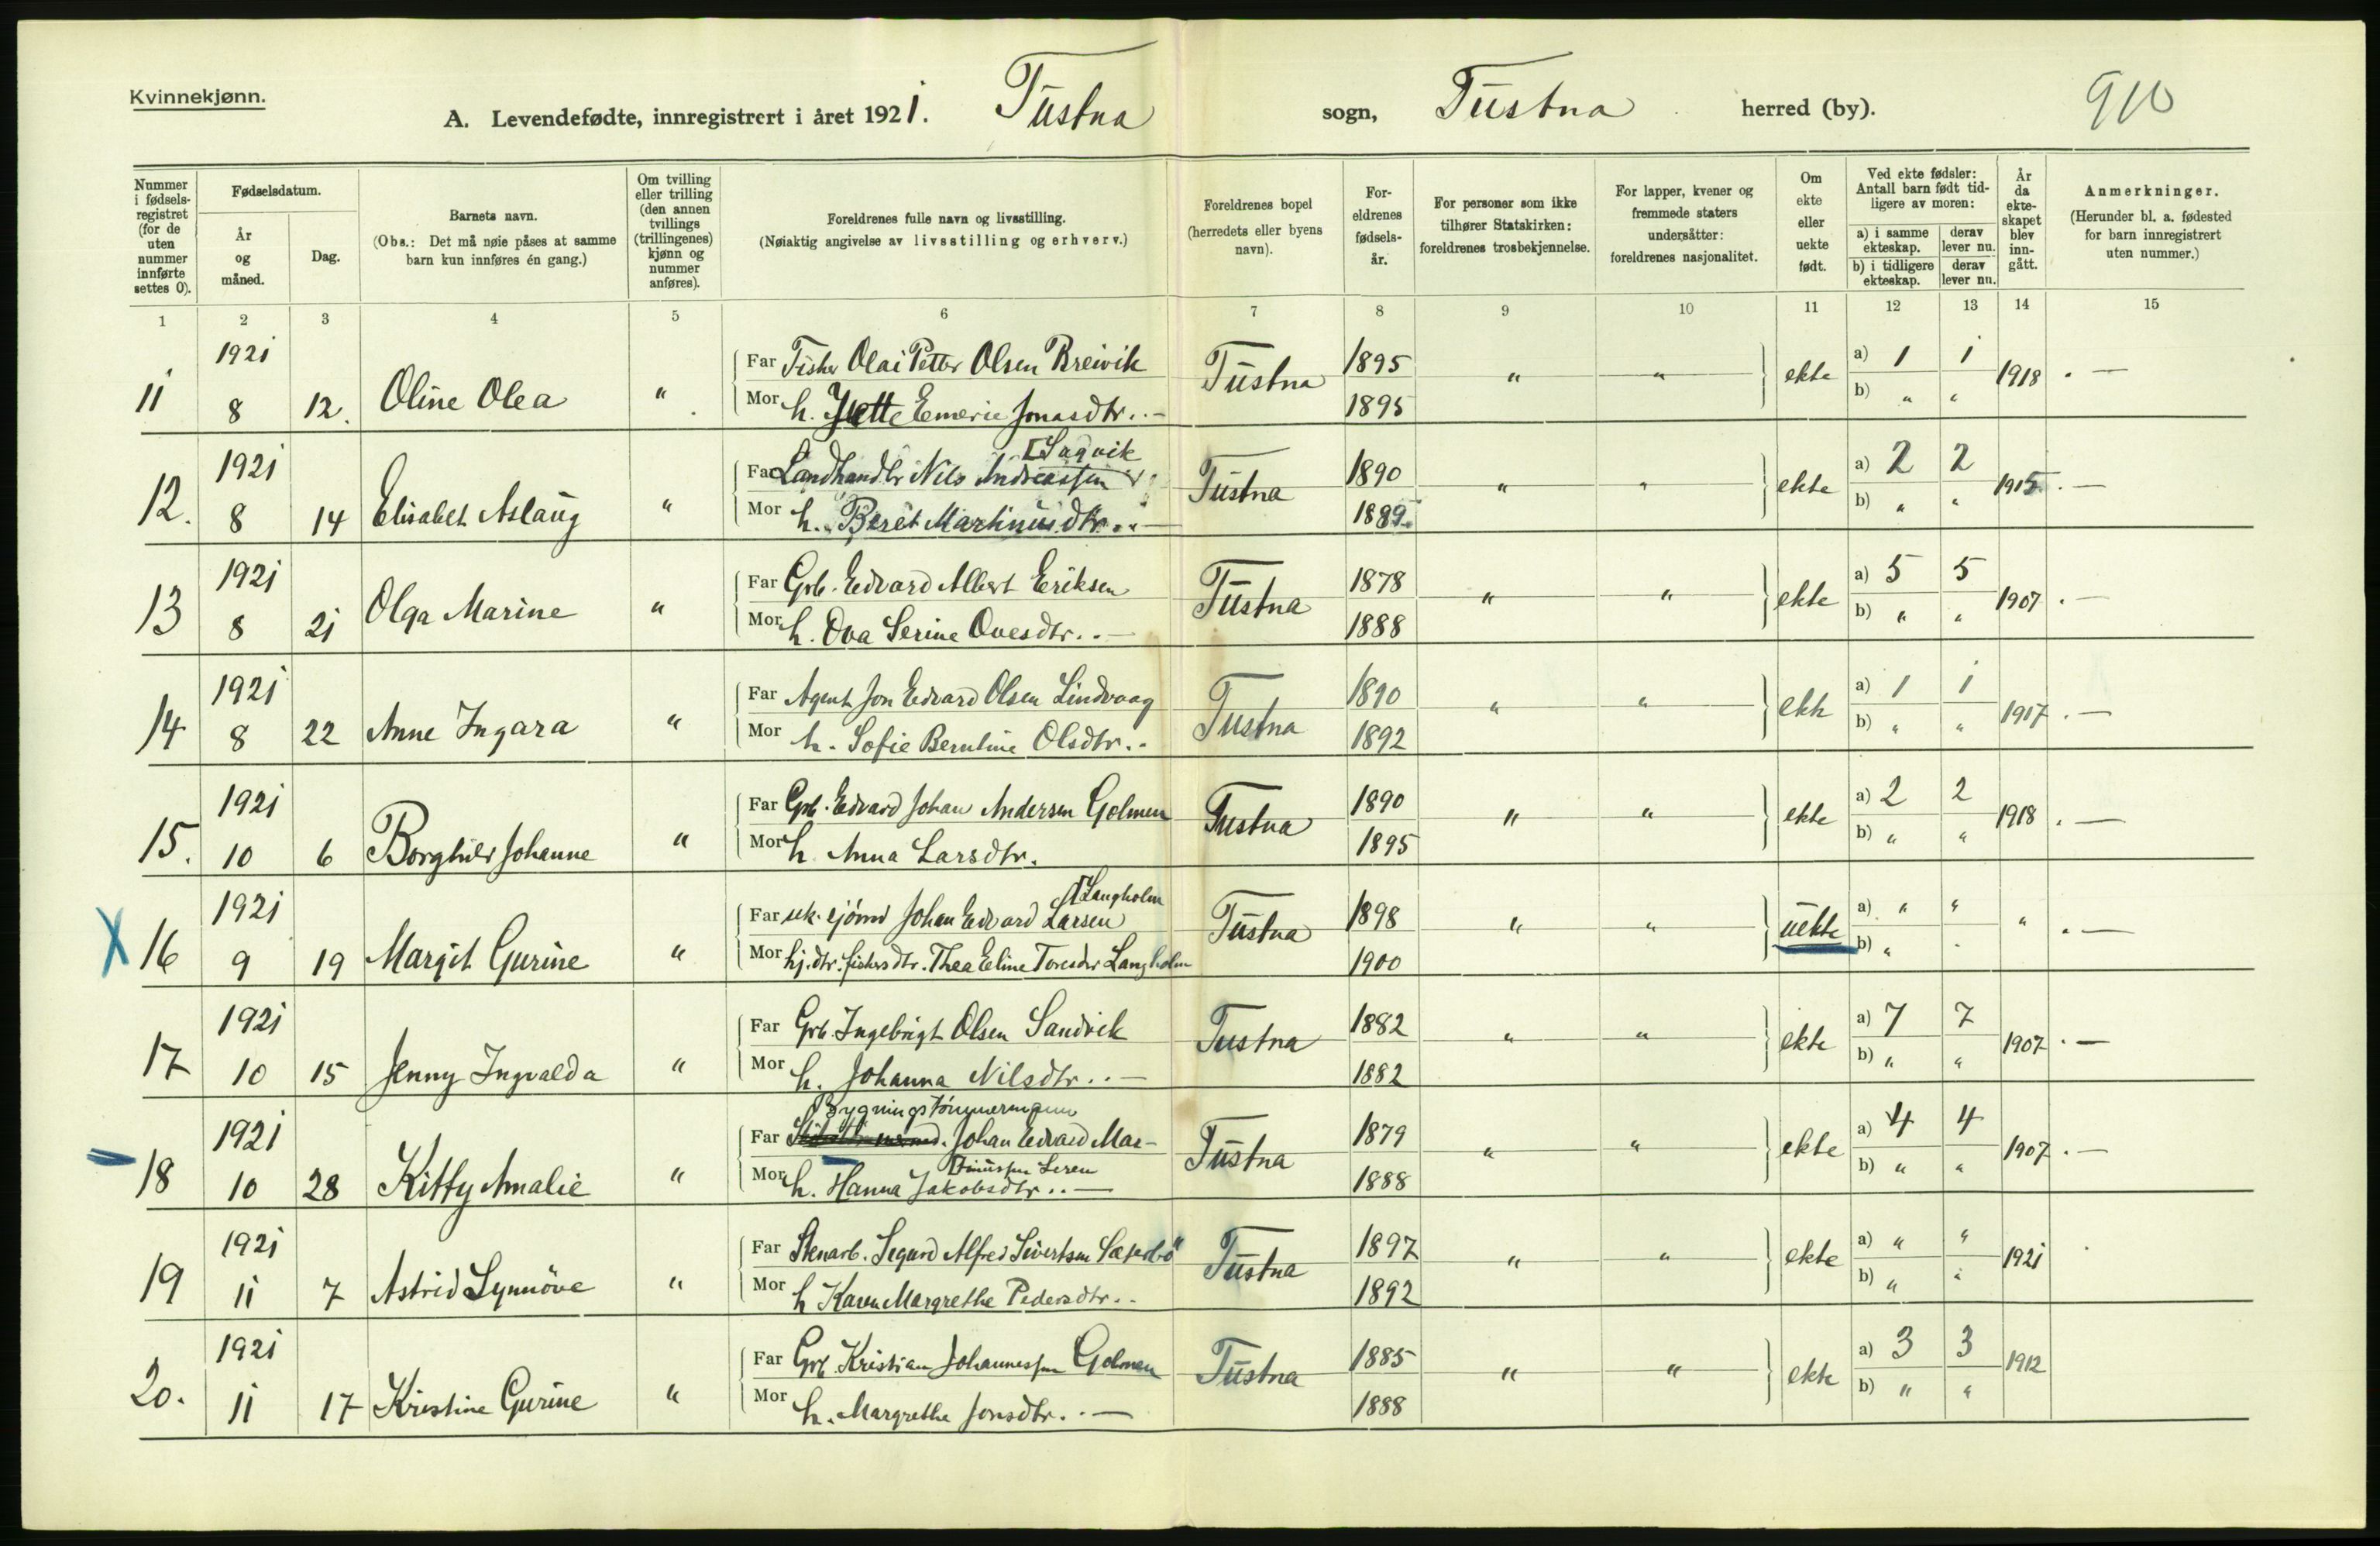 Kvinnekjønn.
A. Levendefødte, innregistrert i året 1921. Tustna sogn, Tustna herred (by). 910
Nummer i fødselsregistret (for de uten nummer innførte settes 0).
Fødselsdatum.
År og måned.
Dag.
Barnets navn.
(Obs.: Det må nøie påses at samme barn kun innføres én gang.)
Om tvilling eller trilling (den annen tvillings (trillingenes) kjønn og nummer anføres).
Foreldrenes fulle navn og livsstilling.
(Nøiaktig angivelse av livsstilling og erhverv.)
Foreldrenes bopel (herredets eller byens navn).
Foreldrenes fødselsår.
For personer som ikke tilhører Statskirken: foreldrenes trosbekjennelse.
For lapper, kvener og fremmede staters undersåtter: foreldrenes nasjonalitet.
Om ekte eller uekte født.
Ved ekte fødsler: Antall barn født tidligere av moren:
a) i samme ekteskap. derav lever nu.
b) i tidligere ekteskap. derav lever nu.
År da ekteskapet blev inngått.
Anmerkninger.
(Herunder bl. a. fødested for barn innregistrert uten nummer.)
1 2 3 4 5 6 7 8 9 10 11 12 13 14 15
1921 Far Fisker Olai Petter Olsen Breivik 1895 a) 1 1
11 8 12. Oline Olea " Tustna " " ekte 1918 . —
Mor h. Emerie Jonasdtr. . — 1895 b) " "
1921 [Sagvik
Far Landhandlr Nils Andreassen 1890 a) 2 2
12. 8 14 Elisabet Aslaug " Tustna " " ekte 1915 . —
Mor h. Beret Martinusdtr. . — 1889. b) " "
1921 Far Grb. Edvard Albert Eriksen 1878 a) 5 5
13 8 21 Olga Marine " Tustna " " ekte 1907 . —
Mor h. Ova Serine Ovesdtr. . — 1888 b) " "
1921 Far Agent Jon Edvard Olsen Lindvaag 1890 a) 1 1
14 8 22 Anne Ingara " Tustna " " ekte 1917 . —
Mor h. Sofie Berntine Olsdtr. . 1892 b) " "
1921 Far Grb. Edvard Johan Andersen Golmen 1890 a) 2 2
15. 10 6 Borghild Johanne " Tustna " " ekte 1918 . —
Mor h. Anna Larsdtr. 1895 b) " "
1921 [Langholm
Far uk. sjømd Johan Edvard Larsen 1898 a) " "
X 16 9 19 Margit Gurine " Tustna " " uekte " . —
Mor hj. dtr. fiskersdtr. Thea Eline Toresdtr Langholm 1900 b) "
1921 Far Grb. Ingebrigt Olsen Sandvik 1882 a) 7 7
17 10 15 Jenny Ingvalda " Tustna " " ekte 1907 . —
Mor h. Johanna Nilsdtr. . — 1882 b) " "
Bygningstömmermann
1921 Far Johan Edvard Mar- 1879 a) 4 4
18 10 28 Kitty Amalie " Tustna " " ekte 1907 . —
[tinussen Leren
Mor h. Hanna Jakobsdtr. . — 1888 b) " "
1921 Far Stenarb. Segurd Alfred Sivertsen Sæterbö 1897 a) " "
19 11 7 Astrid Synnöve " Tustna " " ekte 1921
Mor h Karen Margrethe Pedersdtr. . 1892 b) " "
1921 Far Grb. Kristian Johannessen Golmen 1885 a) 3 3
20. 11 17 Kristine Gurine " Tustna " " ekte 1912
Mor h. Margrethe Jonsdtr. . — 1888 b) " "